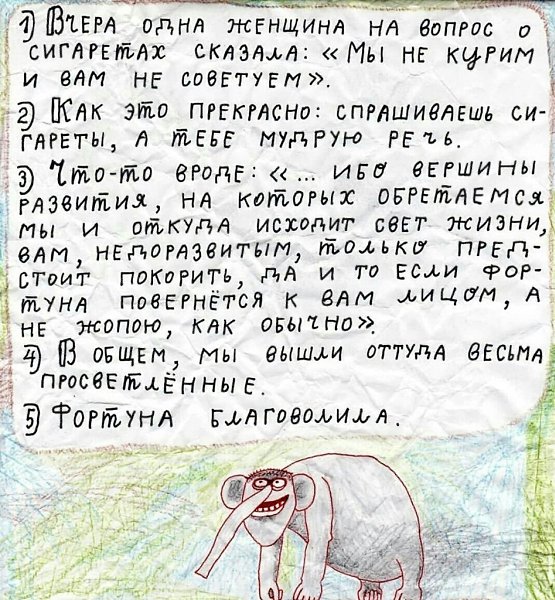 1) Вчера одна женщина на вопрос о
сигаретах сказала: «Мы не курим
и вам не советуем».
2) Как это прекрасно: спрашиваешь си-
гареты, а тебе мудрую речь.
3) Что-то вроде: «... ибо вершины
развития, на которых обретаемся
мы и откуда исходит свет жизни,
вам, недоразвитым, только пред-
стоит покорить, да и то если фор-
туна повернётся к вам лицом, а
не жопою, как обычно».
4) В общем, мы вышли оттуда весьма
просветлённые.
5) Фортуна благоволила.